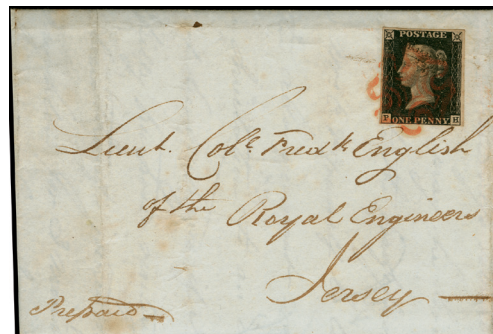 POSTAGE
ONE PENNY
Lieut. Colˡ. Fredᵏ English
of the Royal Engineers
Jersey
Prepaid